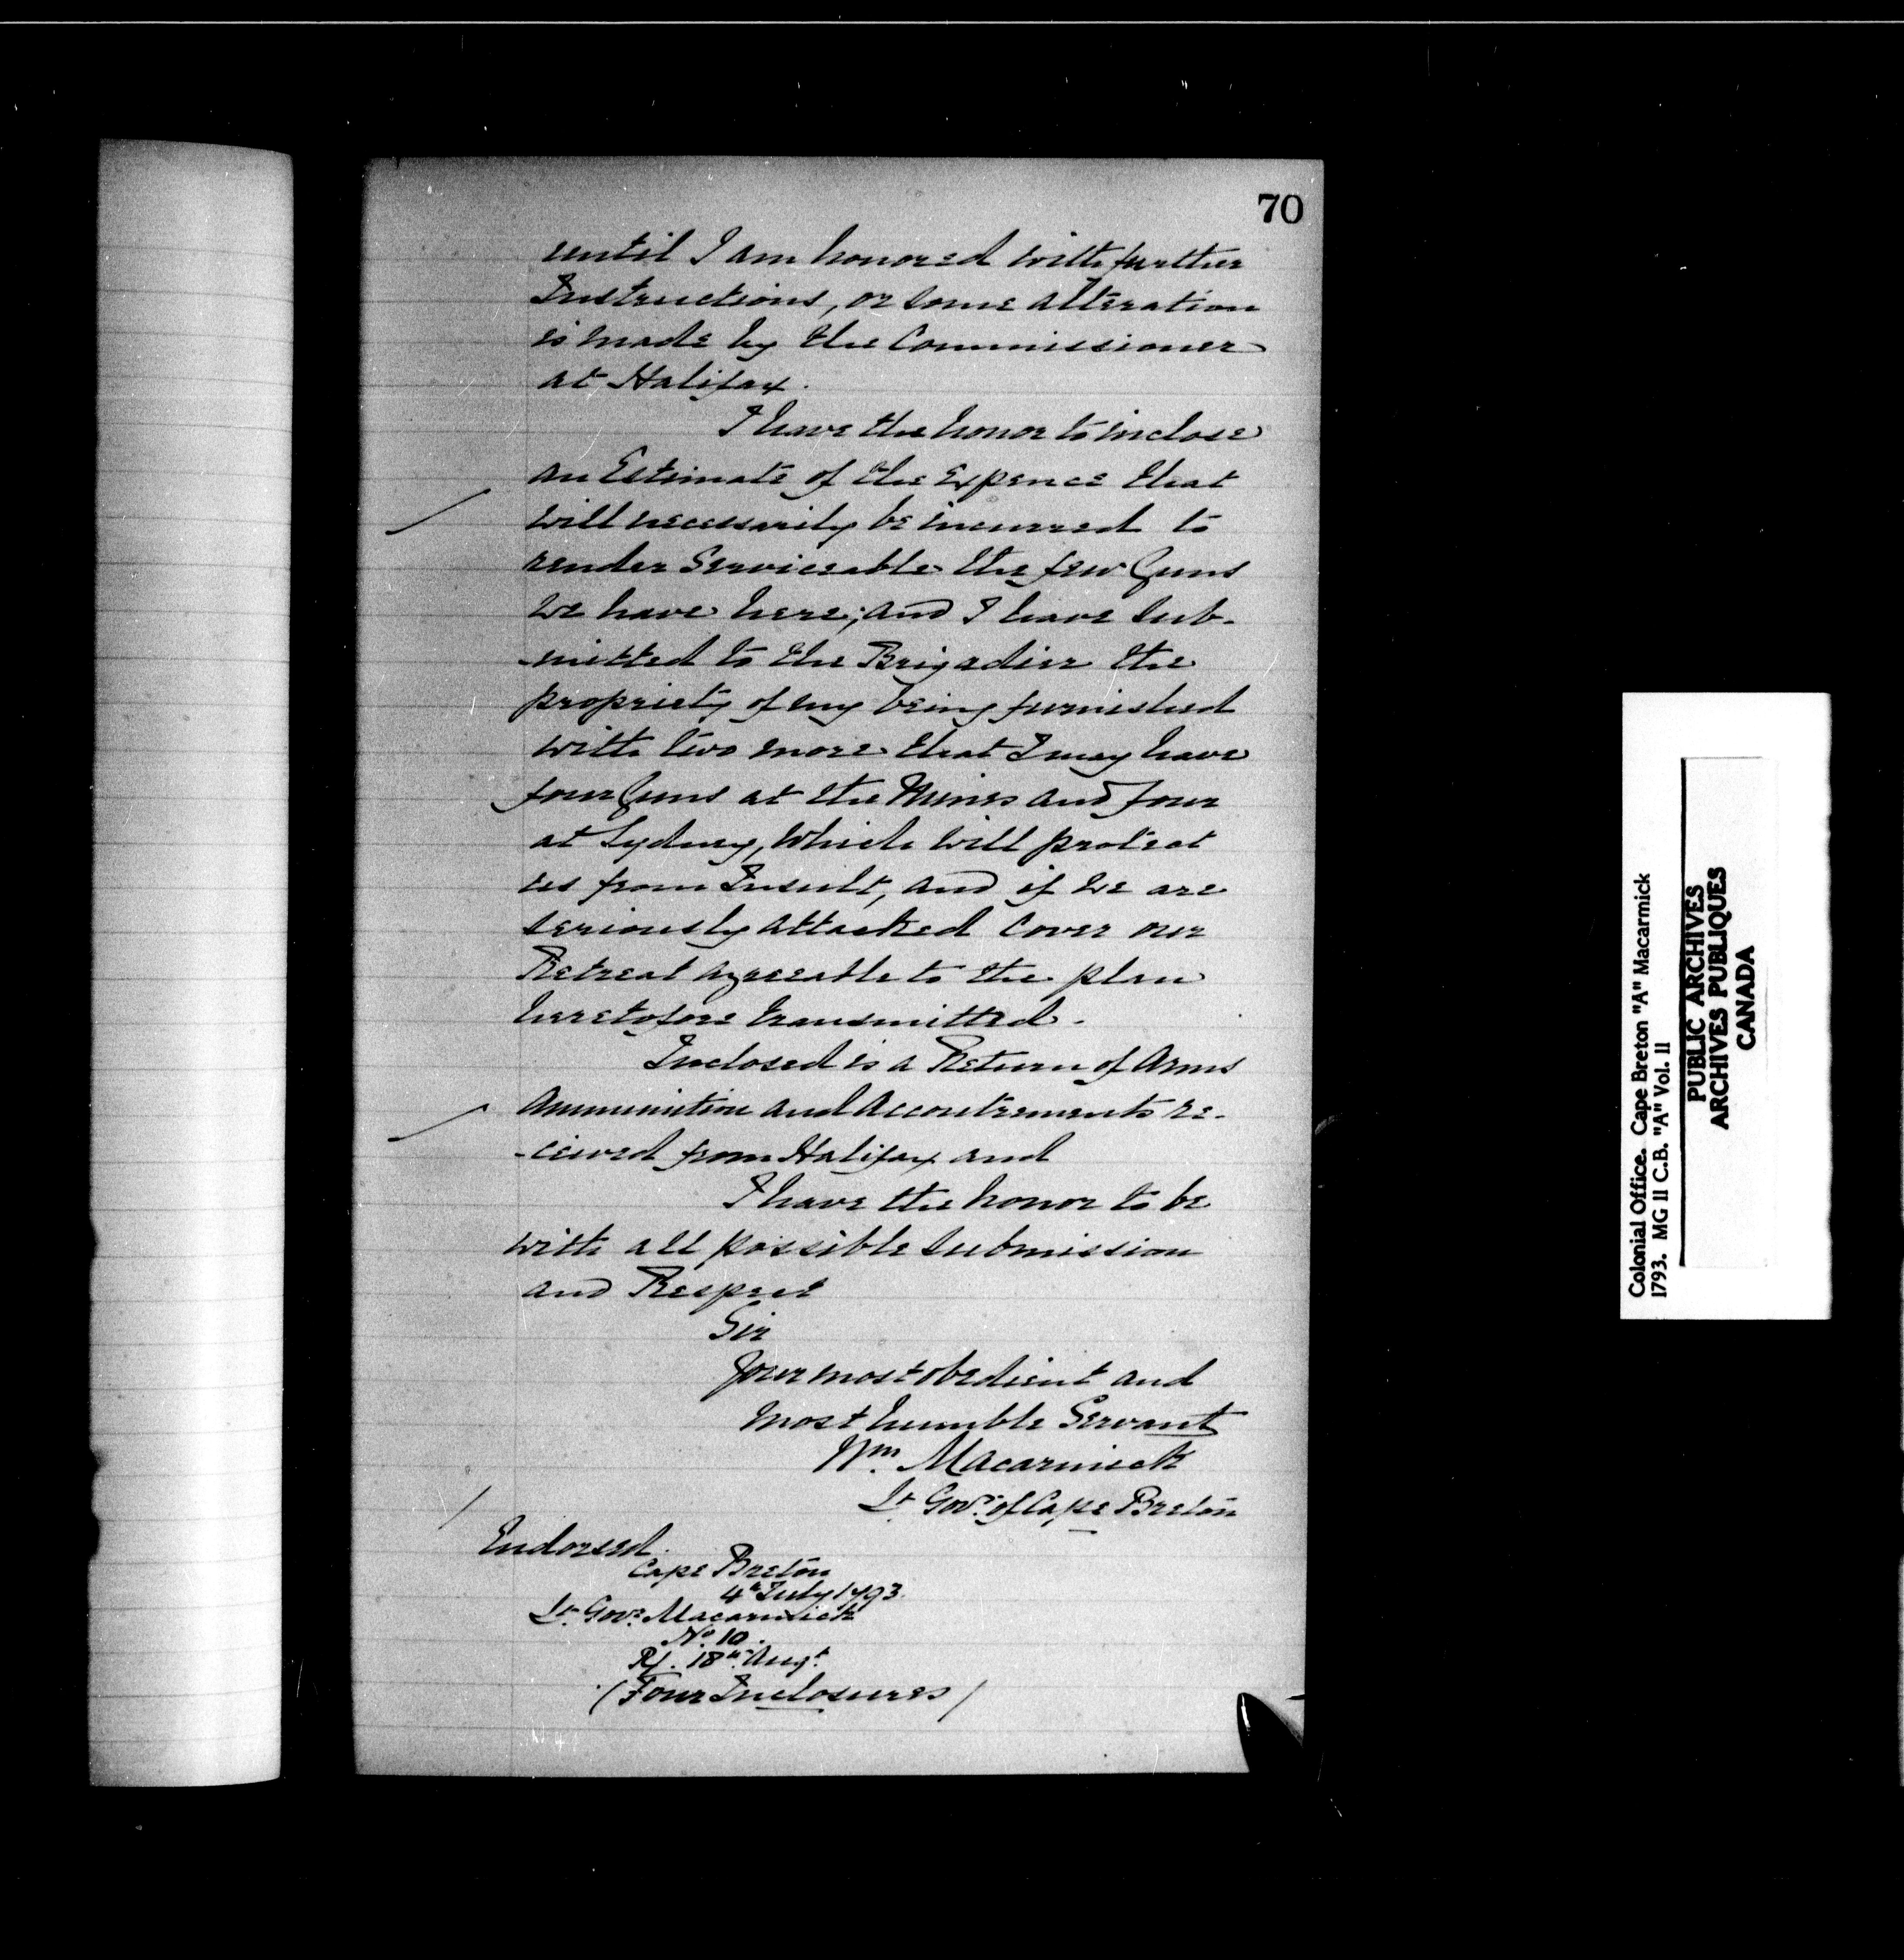 70
until I am honored with further
Instructions, or some alteration
is made by the Commissioner
at Halifax.
I have the honor to inclose
an Estimate of the Expence that
will necessarily be incurred to
render Serviceable the few Guns
we have here; and I have sub-
-mitted to the Brigadier the
propriety of my being furnished
with two more that I may have
four Guns at the Mines and four
at Sydney, which will protect
us from Insult, and if we are
seriously attacked cover our
Retreat agreeable to the plan
heretofore transmitted.
Inclosed is a Return of Arms
Ammunition and Accoutrements re-
-ceived from Halifax and
I have the honor to be
with all possible submission
and Respect
Sir
Your most obedient and
most humble Servant
Wm. Macarmick
Lt. Govr. of Cape Breton
Endorsed.
Cape Breton
4th July 1793.
Lt. Govr. Macarmick
No. 10.
R/. 18th Augt.
(Four Inclosures)
Colonial Office. Cape Breton "A" Macarmick
1793. MG 11 C.B. "A" Vol. 11
PUBLIC ARCHIVES
ARCHIVES PUBLIQUES
CANADA